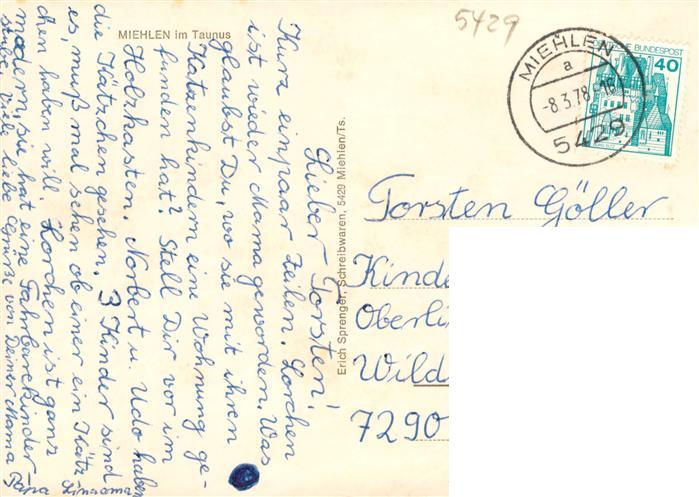 MIEHLEN im Taunus
5429
MIEHLEN
a
-8.3.78-16
5429
DEUTSCHE BUNDESPOST
40
Erich Sprenger, Schreibwaren, 5429 Miehlen/Ts.
Lieber Torsten!
Kurz einpaar Zeilen. Lorchen
ist wieder Mama geworden. Was
glaubst Du, wo sie mit ihren
Katzenkindern eine Wohnung ge-
funden hat? Stell Dir vor im
Holzkasten. Norbert u. Udo haben
die Kätzchen gesehen. 3 Kinder sind
es, muß mal sehen ob einer ein Kätz
chen haben will. Lorchen ist ganz
modern, sie hat eine Fahrbarekinder
stube. Viele liebe Grüße von Deiner Mama
Papa
Torsten Göller
Kinde
Oberli
Wild
7290